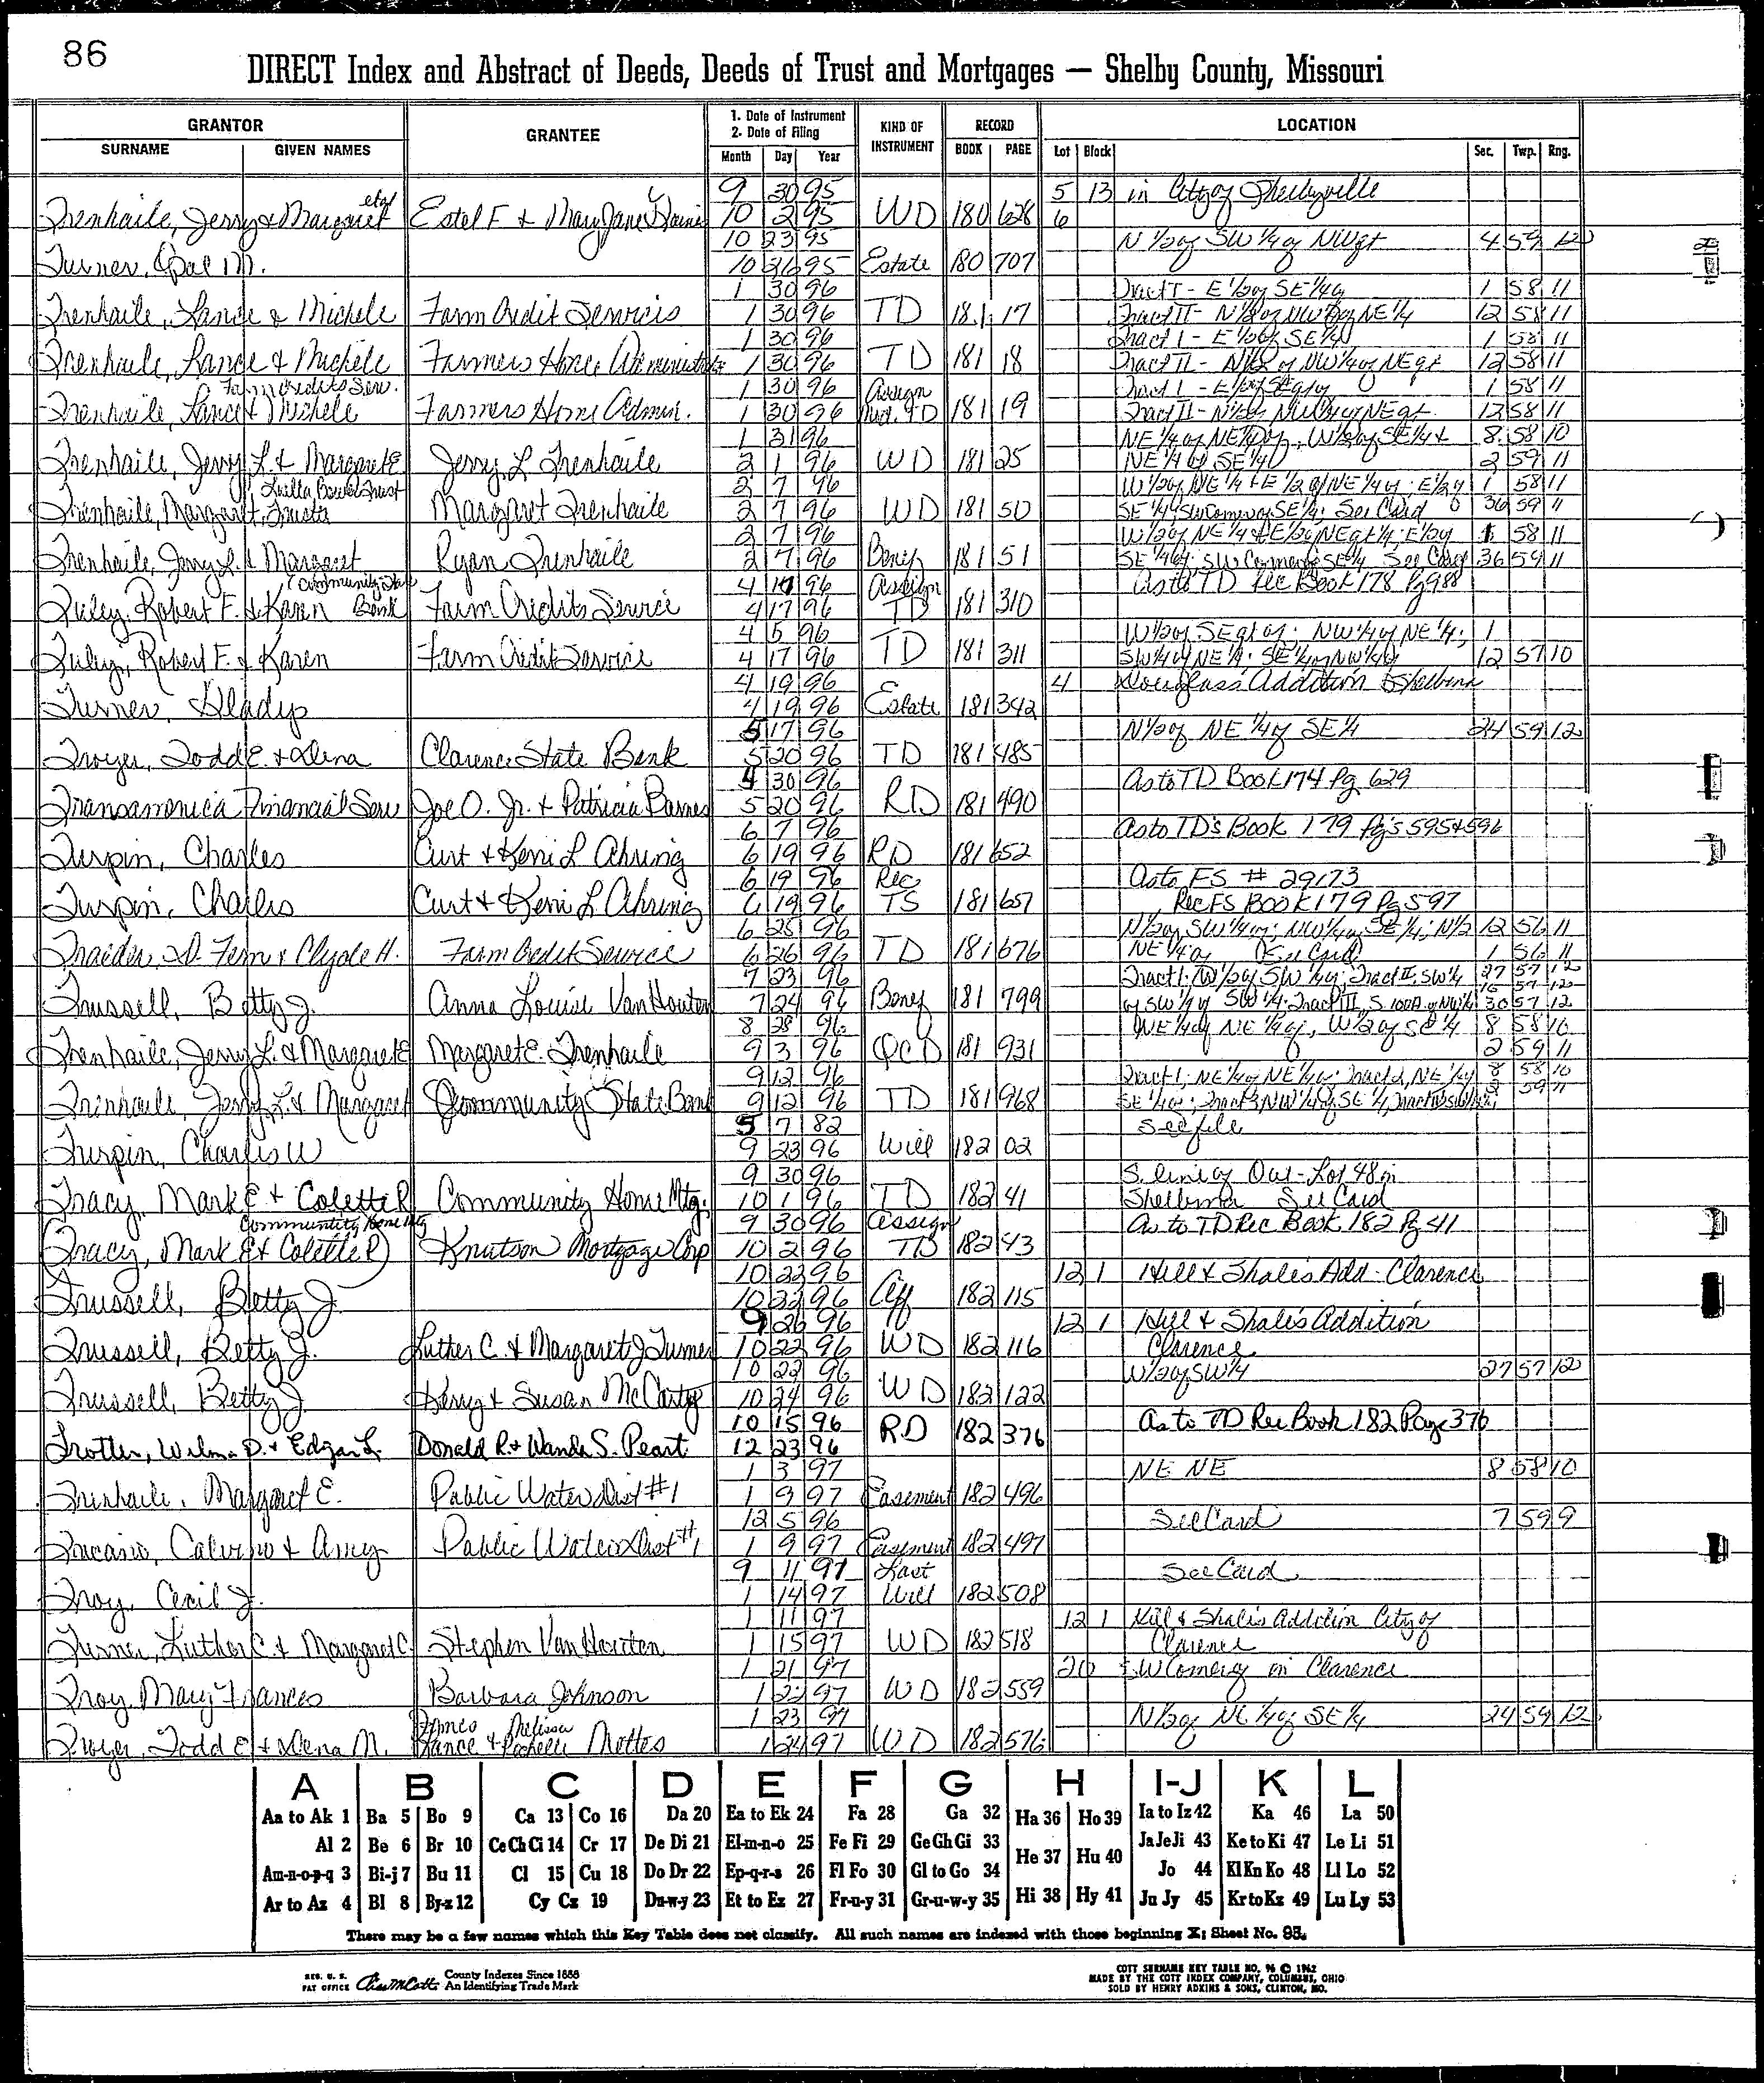 86
DIRECT Index and Abstract of Deeds, Deeds of Trust and Mortgages — Shelby County, Missouri
GRANTOR
SURNAME GIVEN NAMES
GRANTEE
1. Date of Instrument
2. Date of Filing
Month Day Year
KIND OF INSTRUMENT
RECORD
BOOK PAGE
LOCATION
Lot Block Sec. Twp. Rng.
9 30 95 5 13 in City of Shelbyville
Trenhaile, Jerry & Margaret etal Estel F & Mary Jane 10 2 95 WD 180 628 6
10 23 95 N 1/2 of SW 1/4 of NWqt 4 59 12
Turner, Opal M. 10 26 95 Estate 180 707
1 30 96 Tract I - E 1/2 of SE 1/4 of 1 58 11
Trenhaile, Lance & Michele Farm Credit Services 1 30 96 TD 181 17 Tract II - N 1/2 of NW 1/4 of NE 1/4 12 58 11
1 30 96 Tract I - E 1/2 of SE 1/4 1 58 11
Trenhaile, Lance & Michele Farmers Home 1 30 96 TD 181 18 Tract II - N 1/2 of NW 1/4 of NE qt 12 58 11
Farm Credits Serv. 1 30 96 Assign Tract I - E 1/2 of SE qt of 1 58 11
Trenhaile, Lance & Michele Farmers Home Admin. 1 30 96 TD 181 19 Tract II - N 1/2 of NW 1/4 of NE qt. 12 58 11
1 31 96 NE 1/4 of NE 1/4 of; W 1/2 of SE 1/4 & 8 58 10
Trenhaile, Jerry L. & Margaret E Jerry L Trenhaile 2 1 96 WD 181 25 NE 1/4 of SE 1/4 2 59 11
Luella Trust 2 7 96 W 1/2 of NE 1/4 & E 1/2 of NE 1/4 of; E 1/2 of 1 58 11
Trenhaile, Margaret, Margaret Trenhaile 2 7 96 WD 181 50 SE 1/4 SW Corner of SE 1/4; See Card 36 59 11
2 7 96 W 1/2 of NE 1/4 & E 1/2 of NE qt 1/4; E 1/2 of 1 58 11
Trenhaile, Jerry L. & Margaret Ryan Trenhaile 2 7 96 Benef 181 51 SE 1/4 of; SW Corner of SE 1/4 See Card 36 59 11
Community State 4 10 96 Assign As to TD Rec Book 178 Pg 988
Tuley, Robert F. & Karen Bank Farm Credits Service 4 17 96 TD 181 310
4 5 96 W 1/2 of SE qt of; NW 1/4 of NE 1/4; 1
Tuley, Robert F. & Karen Farm Credit Service 4 17 96 TD 181 311 SW 1/4 of NE 1/4; SE 1/4 of NW 1/4 of 12 57 10
4 19 96 4 Douglass Addition Shelbina
Turner, Gladys 4 19 96 Estate 181 342
5 17 96 N 1/2 of NE 1/4 of SE 1/4 24 59 12
Troyer, Todd E. & Dena Clarence State Bank 5 20 96 TD 181 485
4 30 96 As to TD Book 174 Pg 629
Transamerica Financial Serv Joe O. Jr. & Patricia Barnes 5 20 96 RD 181 490
6 7 96 As to TD's Book 179 Pg's 595 & 596
Turpin, Charles Curt & Kerri L Ahring 6 19 96 RD 181 652
6 19 96 Rec As to FS # 29173
Turpin, Charles Curt & Kerri L Ahring 6 19 96 TS 181 657 Rec FS Book 179 Pg 597
6 25 96 N 1/2 of SW 1/4 of; NW 1/4 of SE 1/4; N 1/2 12 56 11
D. Fern & Clyde H. Farm Credit Service 6 26 96 TD 181 676 NE 1/4 of (See Card) 1 56 11
7 23 96 Tract I: W 1/2 of SW 1/4 of; Tract II, SW 1/4 27 57 12
16 57 12
Trussell, Betty J. Anna Louise Van Houten 7 24 96 Benef 181 799 of SW 1/4 of SW 1/4. Tract III, S 100A of NW 1/4 30 57 12
8 28 96 NE 1/4 of NE 1/4 of, W 1/2 of SE 1/4 8 58 10
Trenhaile, Jerry L. & Margaret E Margaret E. Trenhaile 9 3 96 QCD 181 931 2 59 11
9 12 96 Tract 1; NE 1/4 of NE 1/4 of; Tract 2, NE 1/4 of 8 58 10
Trenhaile, Jerry L. & Margaret Community State Bank 9 12 96 TD 181 968 SE 1/4 of; Tract 3, NW 1/4 of SE 1/4, 2 59 11
5 7 82 See file
Turpin, Charles W 9 23 96 Will 182 02
9 30 96 S. line of Out-Lot 48 in
Tracy, Mark E & Colette R Community Home Mtg. 10 1 96 TD 182 41 Shelbina See Card
Community Home Mtg 9 30 96 Assign As to TD Rec Book 182 Pg 41
Tracy, Mark E & Colette R Knutson Mortgage Corp 10 2 96 TD 182 43
10 22 96 12 1 Hill & Shale's Add - Clarence
Trussell, Betty J. 10 22 96 Aff 182 115
9 26 96 12 1 Hill & Shale's Addition
Trussell, Betty J. Luther C. & Margaret J Turner 10 22 96 WD 182 116 Clarence
10 22 96 W 1/2 of SW 1/4 27 57 12
Trussell, Betty J. & Susan McCarty 10 24 96 WD 182 122
10 15 96 As to TD Rec Book 182 Page 376
Trotter, Wilma D. & Edgar L. Donald R. & Wanda S. Peart 12 23 96 RD 182 376
1 3 97 NE NE 8 58 10
Trenhaile, Margaret E. Public Water Dist #1 1 9 97 Easement 182 496
12 5 96 See Card 7 59 9
Calvin & Amy Public Water Dist #1 1 9 97 Easement 182 497
9 11 97 Last See Card
Troy, Cecil J. 1 14 97 Will 182 508
1 11 97 12 1 Hill & Shale's Addition City of
Turner, Luther C. & Margaret C. Stephen Van Houten 1 15 97 WD 182 518 Clarence
1 21 97 20 SW Corner of in Clarence
Troy, Mary Frances Barbara Johnson 1 22 97 WD 182 559
1 23 97 N 1/2 of NE 1/4 of SE 1/4 24 59 12
James Melissa
Troyer, Todd E & Dena M. Lance & Rochelle Mottes 1 24 97 WD 182 576
A B C D E F G H I-J K L
Aa to Ak 1 Ba 5 Bo 9 Ca 13 Co 16 Da 20 Ea to Ek 24 Fa 28 Ga 32 Ha 36 Ho 39 Ia to Iz 42 Ka 46 La 50
Al 2 Be 6 Br 10 Ce Ch Ci 14 Cr 17 De Di 21 El-m-n-o 25 Fe Fi 29 Ge Gh Gi 33 He 37 Hu 40 Ja Je Ji 43 Ke to Ki 47 Le Li 51
Am-n-o-p-q 3 Bi-j 7 Bu 11 Cl 15 Cu 18 Do Dr 22 Ep-q-r-s 26 Fl Fo 30 Gl to Go 34 Hi 38 Hy 41 Jo 44 Kl Kn Ko 48 Ll Lo 52
Ar to Az 4 Bl 8 By-z 12 Cy Cz 19 Du-w-y 23 Et to Ez 27 Fr-u-y 31 Gr-u-w-y 35 Ju Jy 45 Kr to Kz 49 Lu Ly 53
There may be a few names which this Key Table does not classify. All such names are indexed with those beginning X; Sheet No. 93.
REG. U. S. PAT OFFICE County Indexes Since 1888
An Identifying Trade Mark
COTT SURNAME KEY TABLE NO. 96 © 1962
MADE BY THE COTT INDEX COMPANY, COLUMBUS, OHIO
SOLD BY HENRY ADKINS & SONS, CLINTON, MO.